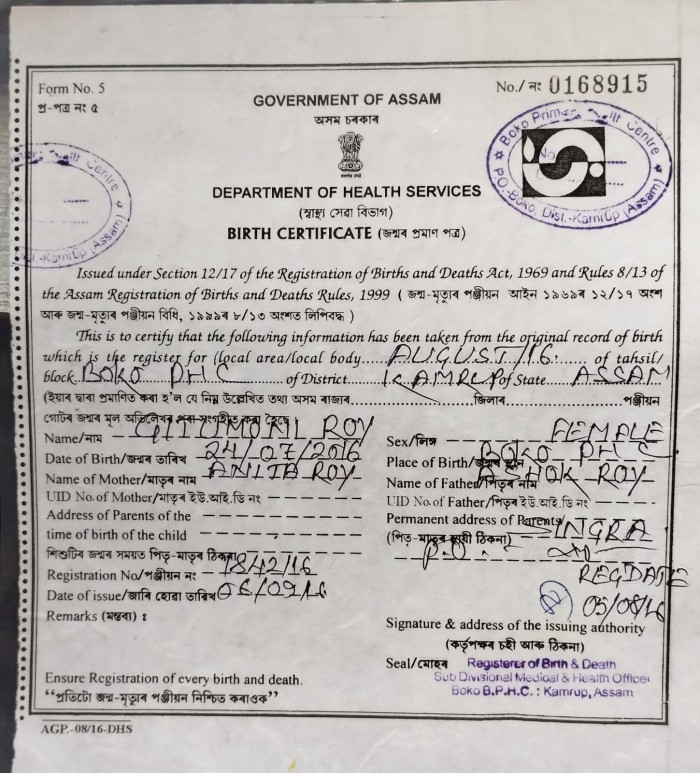 Form No. 5
প্ৰ-পত্ৰ নং ৫
No./ নং 0168915
GOVERNMENT OF ASSAM
অসম চৰকাৰ
Boko Primary Health Centre
P.O.-Boko, Dist.-Kamrup (Assam)
DEPARTMENT OF HEALTH SERVICES
(স্বাস্থ্য সেৱা বিভাগ)
BIRTH CERTIFICATE (জন্মৰ প্ৰমাণ পত্ৰ)
Issued under Section 12/17 of the Registration of Births and Deaths Act, 1969 and Rules 8/13 of
the Assam Registration of Births and Deaths Rules, 1999 ( জন্ম-মৃত্যুৰ পঞ্জীয়ন আইন ১৯৬৯ৰ ১২/১৭ অংশ
আৰু জন্ম-মৃত্যুৰ পঞ্জীয়ন বিধি, ১৯৯৯ৰ ৮/১৩ অংশত লিপিবদ্ধ )
This is to certify that the following information has been taken from the original record of birth
which is the register for (local area/local body....AUGUST/16.... of tahsil/
block BOKO PHC of District KAMRUP of State ASSAM
(ইয়াৰ দ্বাৰা প্ৰমাণিত কৰা হ'ল যে নিম্ন উল্লেখিত তথ্য অসম ৰাজ্যৰ ............ জিলাৰ ............ পঞ্জীয়ন
গোটৰ জন্মৰ মূল অভিলেখৰ পৰা সংগৃহীত কৰা হৈছে)
Name/নাম GITUMONI ROY
Sex/লিঙ্গ FEMALE
Date of Birth/জন্মৰ তাৰিখ 24/07/2016
Place of Birth/জন্মৰ স্থান BOKO PHC
Name of Mother/মাতৃৰ নাম ANITA ROY
Name of Father/পিতৃৰ নাম ASHOK ROY
UID No. of Mother/মাতৃৰ ইউ.আই.ডি নং
UID No. of Father/পিতৃৰ ইউ.আই.ডি নং
Address of Parents of the
time of birth of the child
শিশুটিৰ জন্মৰ সময়ত পিতৃ-মাতৃৰ ঠিকনা
Permanent address of Parents/ INGRA
(পিতৃ-মাতৃৰ স্থায়ী ঠিকনা) P.O
Registration No/পঞ্জীয়ন নং: 1842/16
REGDATE
05/08/16
Date of issue/জাৰি হোৱা তাৰিখ 06/09/16
Remarks (মন্তব্য) :
Signature & address of the issuing authority
(কৰ্তৃপক্ষৰ চহী আৰু ঠিকনা)
Seal/মোহৰ Registerer of Birth & Death
Sub Divisional Medical & Health Officer
Boko B.P.H.C. : Kamrup, Assam
Ensure Registration of every birth and death.
“প্ৰতিটো জন্ম-মৃত্যুৰ পঞ্জীয়ন নিশ্চিত কৰাওক”
AGP.-08/16-DHS